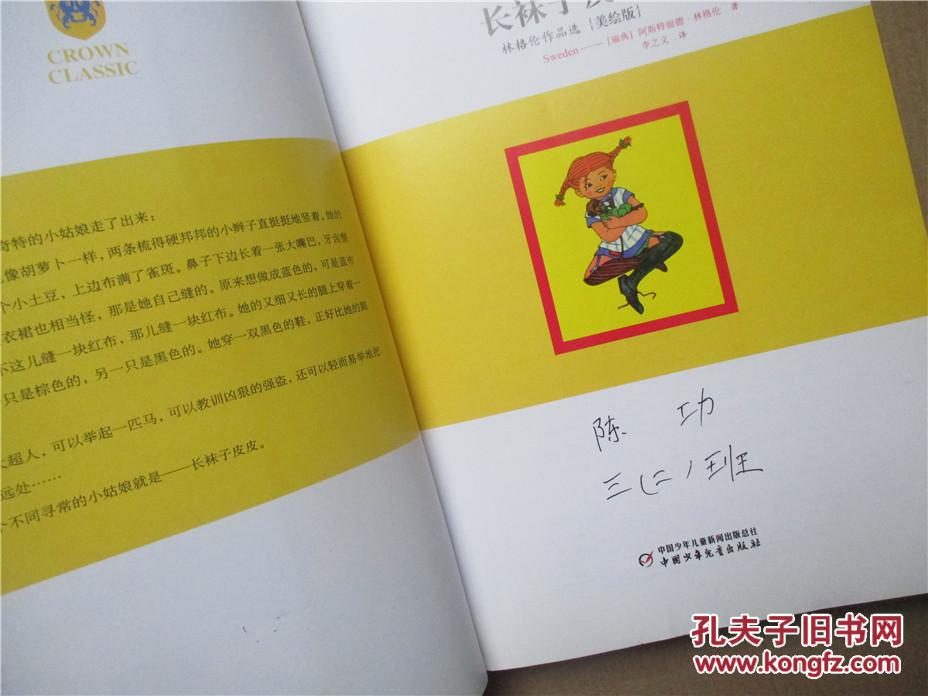 CROWN
CLASSIC
奇特的小姑娘走了出来：
像胡萝卜一样，两条梳得硬邦邦的小辫子直挺挺地竖着。她的
个小土豆，上边布满了雀斑。鼻子下边长着一张大嘴巴，牙齿整
衣裙也相当怪，那是她自己缝的。原来想做成蓝色的，可是蓝布
不这儿缝一块红布，那儿缝一块红布。她的又细又长的腿上穿着一
只是棕色的，另一只是黑色的。她穿一双黑色的鞋，正好比她的脚
超人，可以举起一匹马，可以教训凶狠的强盗，还可以轻而易举地把
远处……
个不同寻常的小姑娘就是——长袜子皮皮。
长袜子皮
林格伦作品选［美绘版］
Sweden——［瑞典］阿斯特丽德·林格伦 著
李之义 译
陈 功
三（二）班
中国少年儿童新闻出版总社
中国少年儿童出版社
孔夫子旧书网
www.kongfz.com